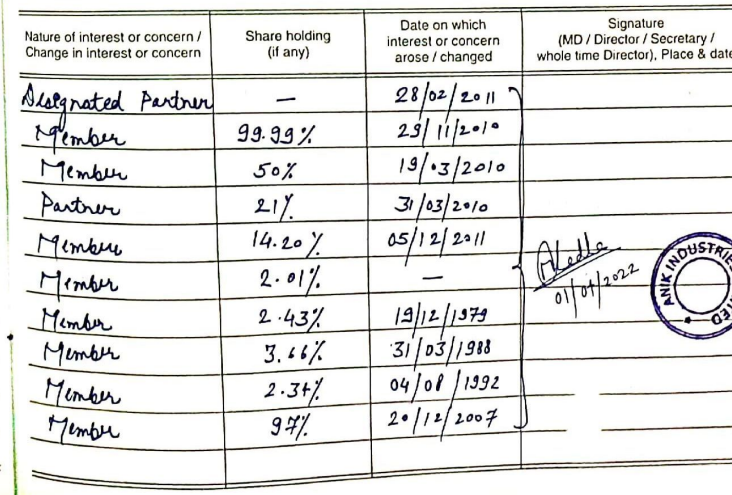 Nature of interest or concern / Change in interest or concern | Share holding (if any) | Date on which interest or concern arose / changed | Signature (MD / Director / Secretary / whole time Director), Place & date
Designated Partner | — | 28/02/2011
Member | 99.99% | 29/11/2010
Member | 50% | 19/03/2010
Partner | 21% | 31/03/2010
Member | 14.20% | 05/12/2011
Member | 2.01% | —
Member | 2.43% | 19/12/1979
Member | 3.66% | 31/03/1988
Member | 2.34% | 04/08/1992
Member | 97% | 20/12/2007
01/04/2022
ANIK INDUSTRIES